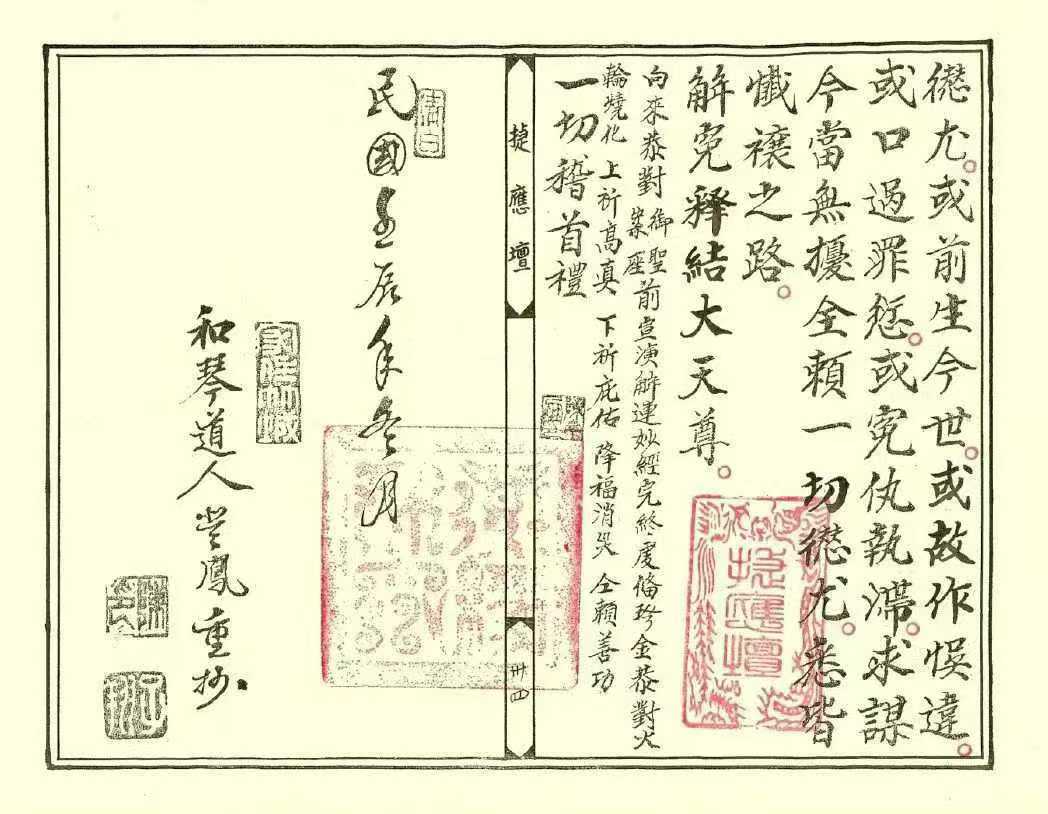 愆尤。或前生今世。或故作悞違。
或口過罪愆。或冤仇執滯。求謀
今當無擾全賴一切愆尤。悉皆
懺禳之路。
解冤释結大天尊。
向來恭對御案聖座前宣演解連妙經完終虔俻珍金恭對火
輪燒化 上祈高真 下祈庇佑 降福消災 仝賴善功
一切稽首禮
捷應壇
卅四
民國壬辰年冬月
和琴道人 鳳重抄
捷應壇